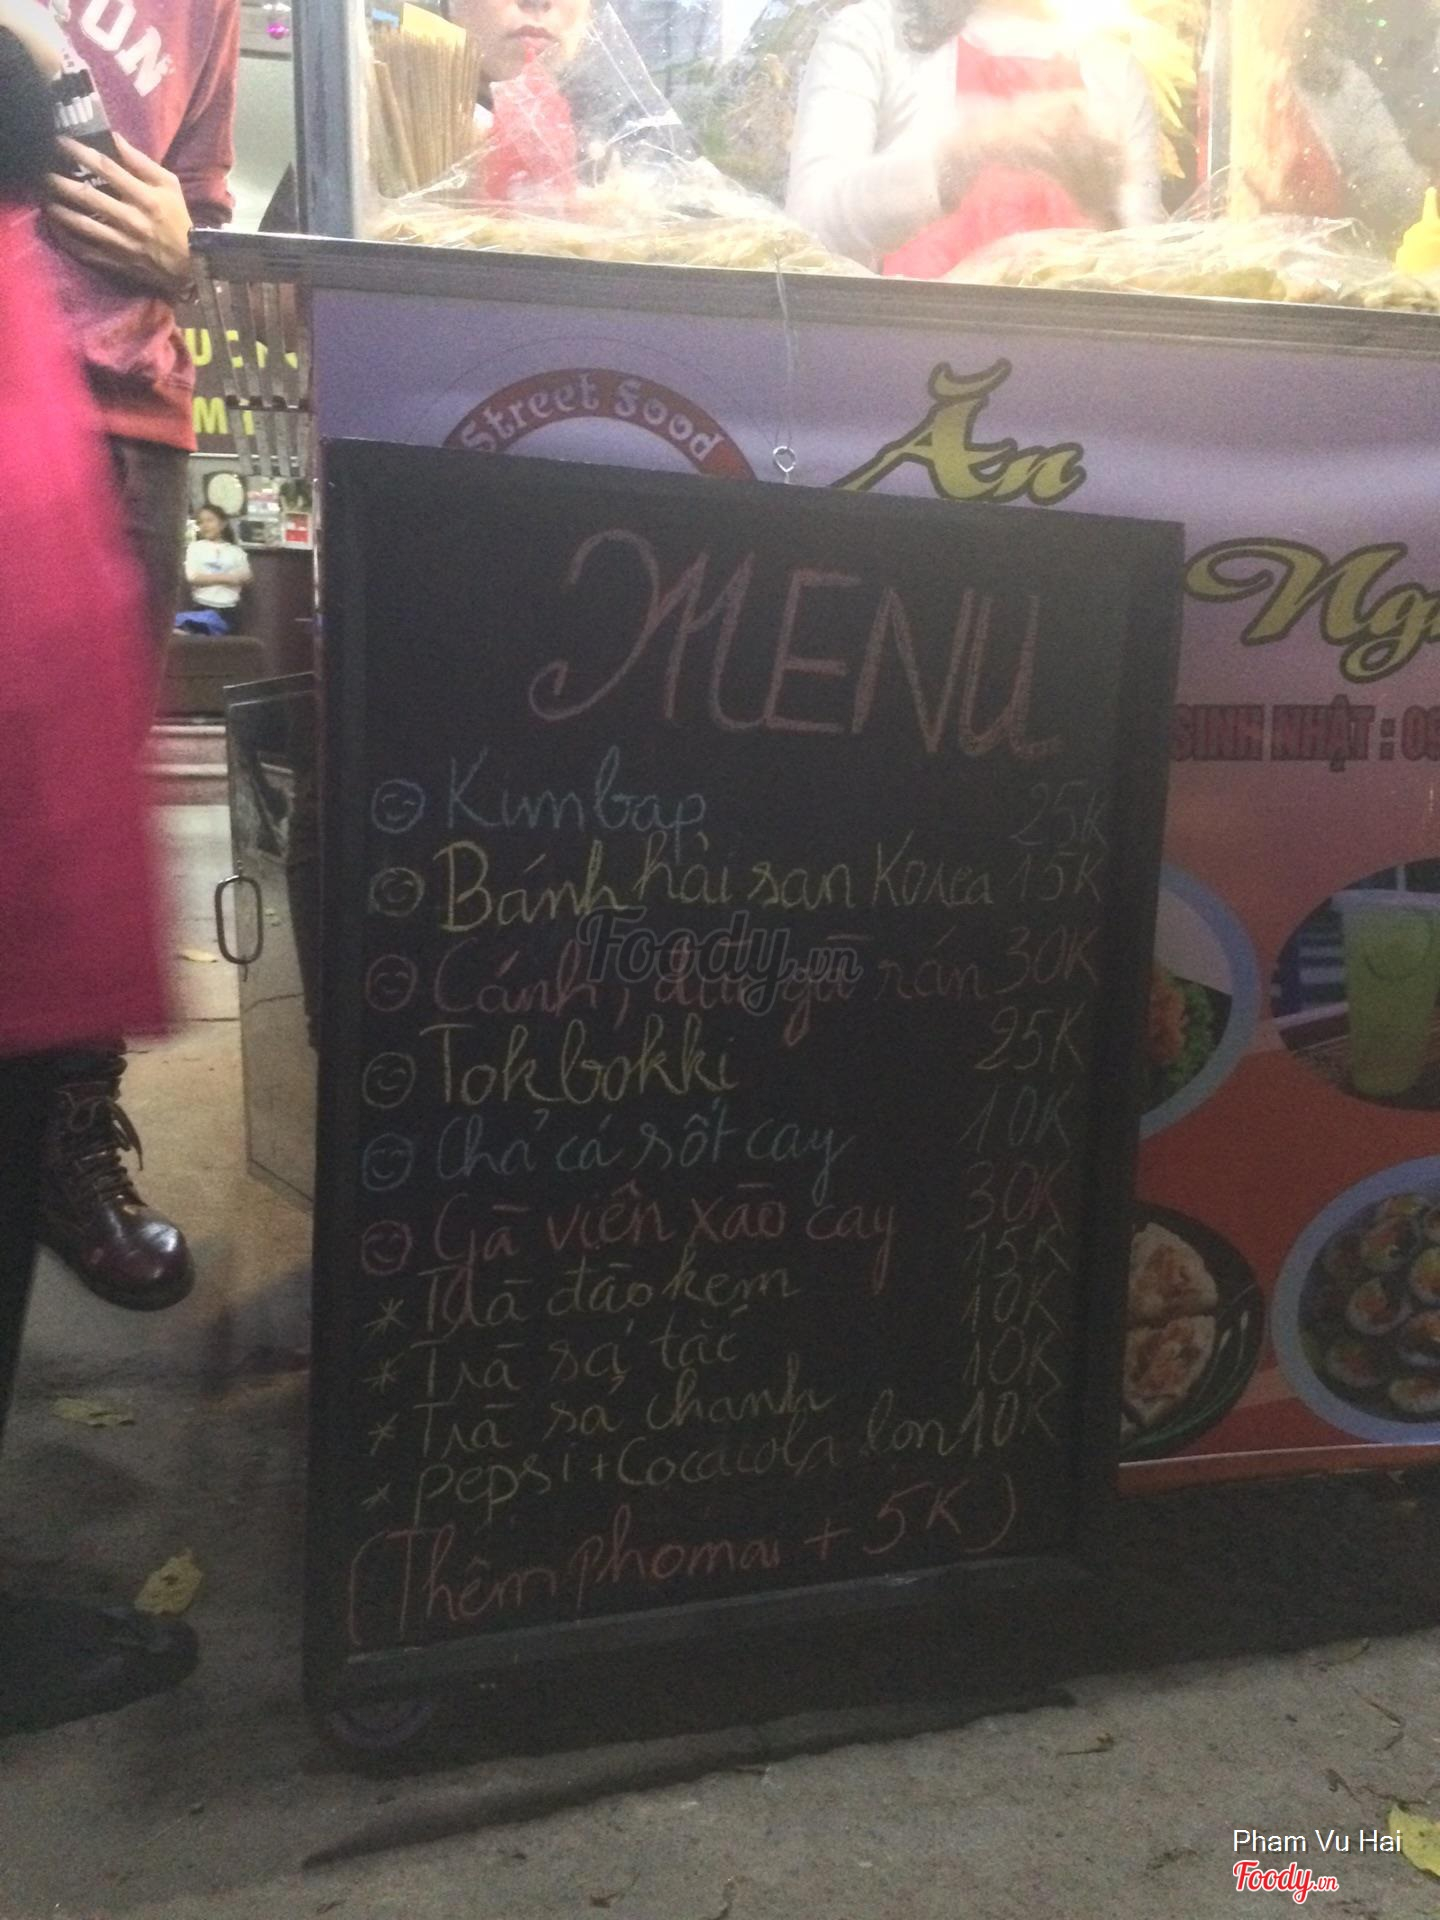 Street Food
Ăn
SINH NHẬT : 09
MENU
Kimbap 25K
Bánh hải sản Korea 15K
Cánh, đùi gà rán 30K
Tokbokki 25K
Chả cá sốt cay 10K
Gà viên xào cay 30K
* Trà đào kem 15K
* Trà sả tắc 10K
* Trà sả chanh 10K
* Pepsi + Cocacola lon 10K
(Thêm phomai + 5K)
Foody.vn
Pham Vu Hai
Foody.vn